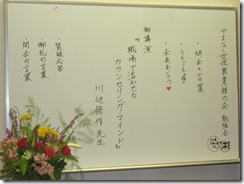 やまなし女性異業種の会 勉強会
・開会の言葉
・会長あいさつ♥
御講演
"職場で活かせる
カウンセリングマインド"
川辺修作 先生
・質疑応答
・御礼の言葉
・閉会の言葉